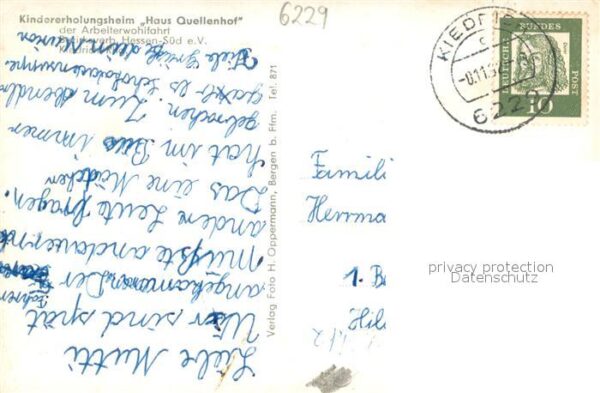 Kindererholungsheim „Haus Quellenhof"
der Arbeiterwohlfahrt
Bezirksverb. Hessen-Süd e.V.
6229
Liebe Mutti
Wir sind spät
angekommen. Der Fahrer
mußte andauernd
andere Leute fragen.
Das eine Mädchen
hat im Bus immer
gebrochen. Zum Abendbr
gab es Schokoladensuppe
Viele Grüße dein
Verlag Foto H. Oppermann, Bergen b. Ffm. Tel. 871
KIEDRICH
6229
DEUTSCHE BUNDESPOST
10
Famili
Herrma
1. B
Hil
privacy protection
Datenschutz